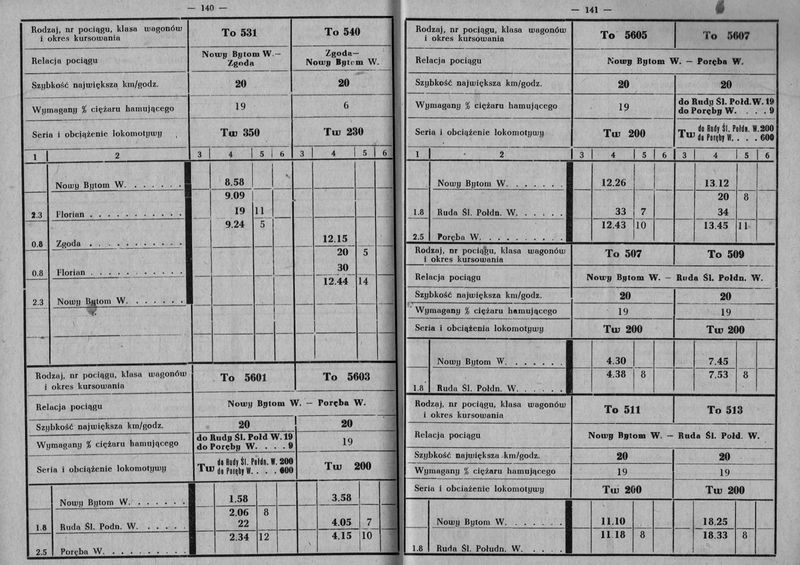 — 140 —
Rodzaj, nr pociągu, klasa wagonów i okres kursowania To 531 To 540
Relacja pociągu Nowy Bytom W.— Zgoda Zgoda— Nowy Bytom W.
Szybkość największa km/godz. 20 20
Wymagany % ciężaru hamującego 19 6
Seria i obciążenie lokomotywy Tw 350 Tw 230
1 2 3 4 5 6 3 4 5 6
Nowy Bytom W. 8.58
9.09
2.3 Florian 19 11
9.24 5
0.8 Zgoda 12.15
20 5
0.8 Florian 30
12.44 14
2.3 Nowy Bytom W.
Rodzaj, nr pociągu, klasa wagonów i okres kursowania To 5601 To 5603
Relacja pociągu Nowy Bytom W. — Poręba W.
Szybkość największa km/godz. 20 20
Wymagany % ciężaru hamującego do Rudy Śl. Połd W. 19 do Poręby W. . . . . 9 19
Seria i obciążenie lokomotywy Tw do Rudy Śl. Połdn. W. 200 do Poręby W. . . . 600 Tw 200
Nowy Bytom W. 1.58 3.58
2.06 8
1.8 Ruda Śl. Podn. W. 22 4.05 7
2.34 12 4.15 10
2.5 Poręba W.
— 141 —
Rodzaj, nr pociągu, klasa wagonów i okres kursowania To 5605 To 5607
Relacja pociągu Nowy Bytom W. — Poręba W.
Szybkość największa km/godz. 20 20
Wymagany % ciężaru hamującego 19 do Rudy Śl. Połd.W. 19 do Poręby W. . . . 9
Seria i obciążenie lokomotywy Tw 200 Tw do Rudy Śl. Połdn. W. 200 do Poręby W. . . . 600
1 2 3 4 5 6 3 4 5 6
Nowy Bytom W. 12.26 13.12
20 8
1.8 Ruda Śl. Połdn. W. 33 7 34
12.43 10 13.45 11
2.5 Poręba W.
Rodzaj, nr pociągu, klasa wagonów i okres kursowania To 507 To 509
Relacja pociągu Nowy Bytom W. — Ruda Śl. Połdn. W.
Szybkość największa km/godz. 20 20
Wymagany % ciężaru hamującego 19 19
Seria i obciążenia lokomotywy Tw 200 Tw 200
Nowy Bytom W. 4.30 7.45
4.38 8 7.53 8
1.8 Ruda Śl. Połdn. W.
Rodzaj, nr pociągu, klasa wagonów i okres kursowania To 511 To 513
Relacja pociągu Nowy Bytom W. — Ruda Śl. Połd. W.
Szybkość największa km/godz. 20 20
Wymagany % ciężaru hamującego 19 19
Seria i obciażenie lokomotywy Tw 200 Tw 200
Nowy Bytom W. 11.10 18.25
11.18 8 18.33 8
1.8 Ruda Śl. Południ. W.